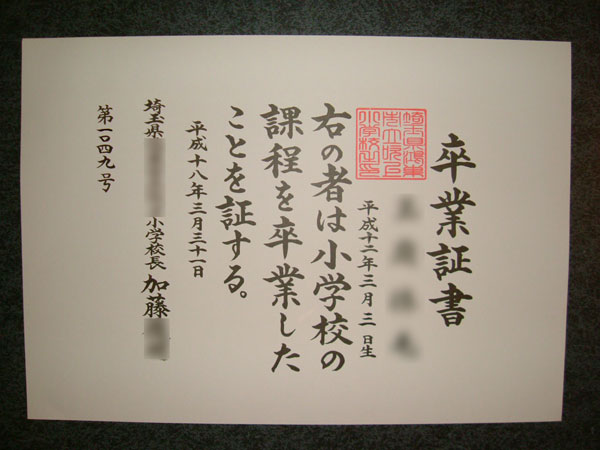 卒業証書
平成十二年三月三日生
右の者は小学校の
課程を卒業した
ことを証する。
平成十八年三月三十一日
埼玉県 小学校長 加藤
第一〇四九号